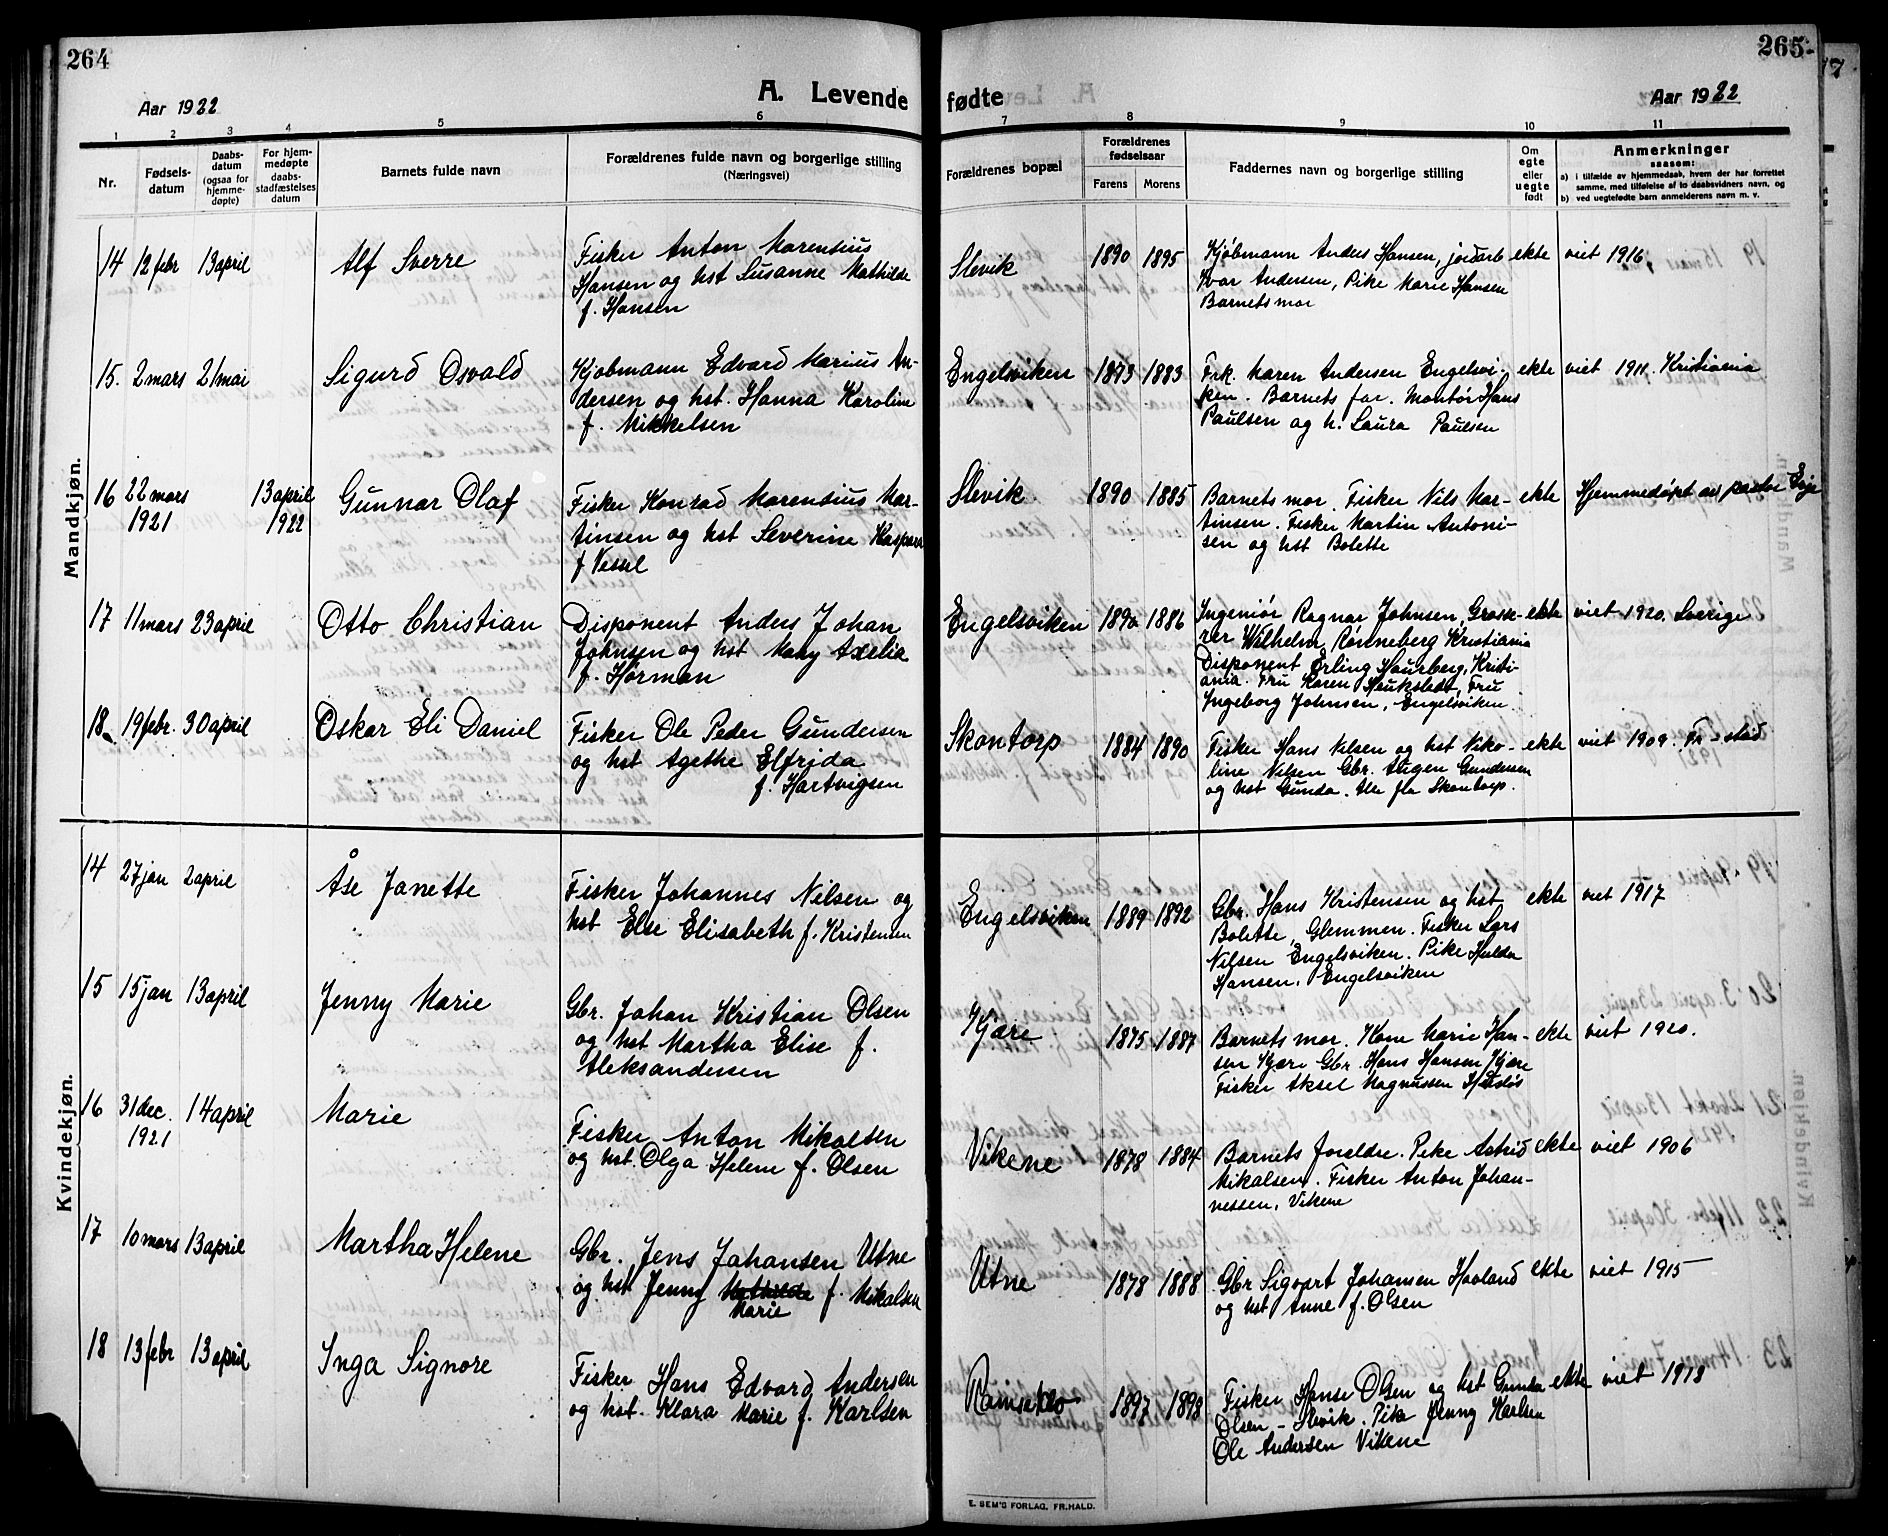 264
265
Aar 1922
A. Levende
fødte
Aar 1922
1 2 3 4 5 6 7 8 9 10 11
Nr.
Fødsels-
datum
Daabs-
datum
(ogsaa for
hjemme-
døpte)
For hjem-
medøpte
daabs-
stadfæstelses
datum
Barnets fulde navn
Forældrenes fulde navn og borgerlige stilling
(Næringsvei)
Forældrenes bopæl
Forældrenes
fødselsaar
Farens Morens
Faddernes navn og borgerlige stilling
Om
egte
eller
uegte
født
Anmerkninger
saasom:
a) i tilfælde av hjemmedaab, hvem der har forrettet
samme, med tilføielse af to daabsvidners navn, og
b) ved uegtefødte barn anmelderens navn m. v.
Mandkjøn.
14 12 febr 13 april
Alf Sverre
Fisker Anton Marensius
Hansen og hst Susanne Mathilde
f. Hansen
Slevik
1890 1895
Kjøbmann Anders Hansen, jordarb
Ivar Andersen, Pike Marie Hansen
Barnets mor
ekte
viet 1916
15. 2 mars 21 mai
Sigurd Osvald
Kjøbmann Edvard Marius An-
dersen og hst. Hanna Karoline
f. Mikkelsen
Engelsviken
1873 1883
Frk. Maren Andersen Engelsvi-
ken. Barnets far. Montør Hans
Paulsen og h. Laura Paulsen
ekte
viet 1911. Kristiania
16 22 mars
1921
13 april
1922
Gunnar Olaf
Fisker Konrad Marensius Mar-
tinsen og hst Severine Kaspara
f Vessel
Slevik
1890 1885
Barnets mor. Fisker Nils Mar-
tinsen. Fisker Martin Antoni-
sen og hst Bolette
ekte
Hjemmedøpt av pastor
17 11 mars 23 april
Otto Christian
Disponent Anders Johan
Johnsen og hst Mary Axelia
f. Hörman
Engelsviken
1890 1886
Ingeniør Ragnar Johnsen, Gross-
rer Wilhelm Rønneberg Kristiania
Disponent Erling Haurberg, Kristi-
ania. Fru Karen Haukstedt, Fru
Ingeborg Johnsen, Engelsviken.
ekte
viet 1920. Sverige
18 19 febr. 30 april
Oskar Eli Daniel
Fisker Ole Peder Gundersen
og hst Agethe Elfrida
f. Hartvigsen
Skontorp
1884 1890
Fisker Hans Nilsen og hst Niko-
line Nilsen Gbr. Augen Gundersen
og hst Gunda. Alle fra Skontorp.
ekte
viet 1909. Fr-stad
Kvindekjøn.
14 27 jan 2 april
Åse Janette
Fisker Johannes Nilsen og
hst Else Elisabeth f. Kristensen
Engelsviken
1889 1892
Gbr. Hans Kristensen og hst
Bolette, Glemmen. Fisker Lars
Nilsen Engelsviken. Pike Hulda
Hansen. Engelsviken
ekte
viet 1917
15 15 jan 13 april
Jenny Marie
Gbr. Johan Kristian Olsen
og hst Martha Elise f.
Aleksandersen
Kjære
1875 1887
Barnets mor. Kone Marie Han-
sen Kjære Gbr. Hans Hansen Kjære
Fisker Aksel Magnussen
ekte
viet 1920.
16 31 dec.
1921
14 april
Marie
Fisker Anton Mikalsen
og hst. Olga Helene f. Olsen
Vikene
1878 1884
Barnets foreldre. Pike Astrid
Mikalsen. Fisker Anton Johan-
nessen, Vikene
ekte
viet 1906
17 10 mars 13 april
Martha Helene
Gbr. Jens Johansen Utne
og hst Jenny Mathilde f. Mikalsen
Marie
Utne
1878 1888
Gbr Sigvart Johansen Haoland
og hst Anne f. Olsen
ekte
viet 1915
18 13 febr 13 april
Inga Signore
Fisker Hans Edvard Andersen
og hst. Klara Marie f. Karlsen
Ramsøklo
1897 1898
Fisker Hans Olsen og hst Gunda
Olsen - Slevik. Pike Jenny Karlsen
Ole Andersen Vikene
ekte
viet 1918
E. SEM'S FORLAG, FR.HALD.